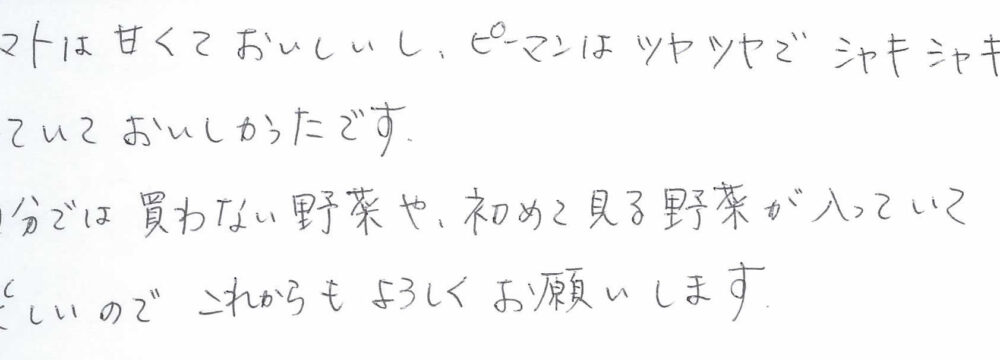 マトは甘くておいしいし、ピーマンはツヤツヤでシャキシャキ
ていておいしかったです.
分では買わない野菜や、初めて見る野菜が入っていて
しいのでこれからもよろしくお願いします.